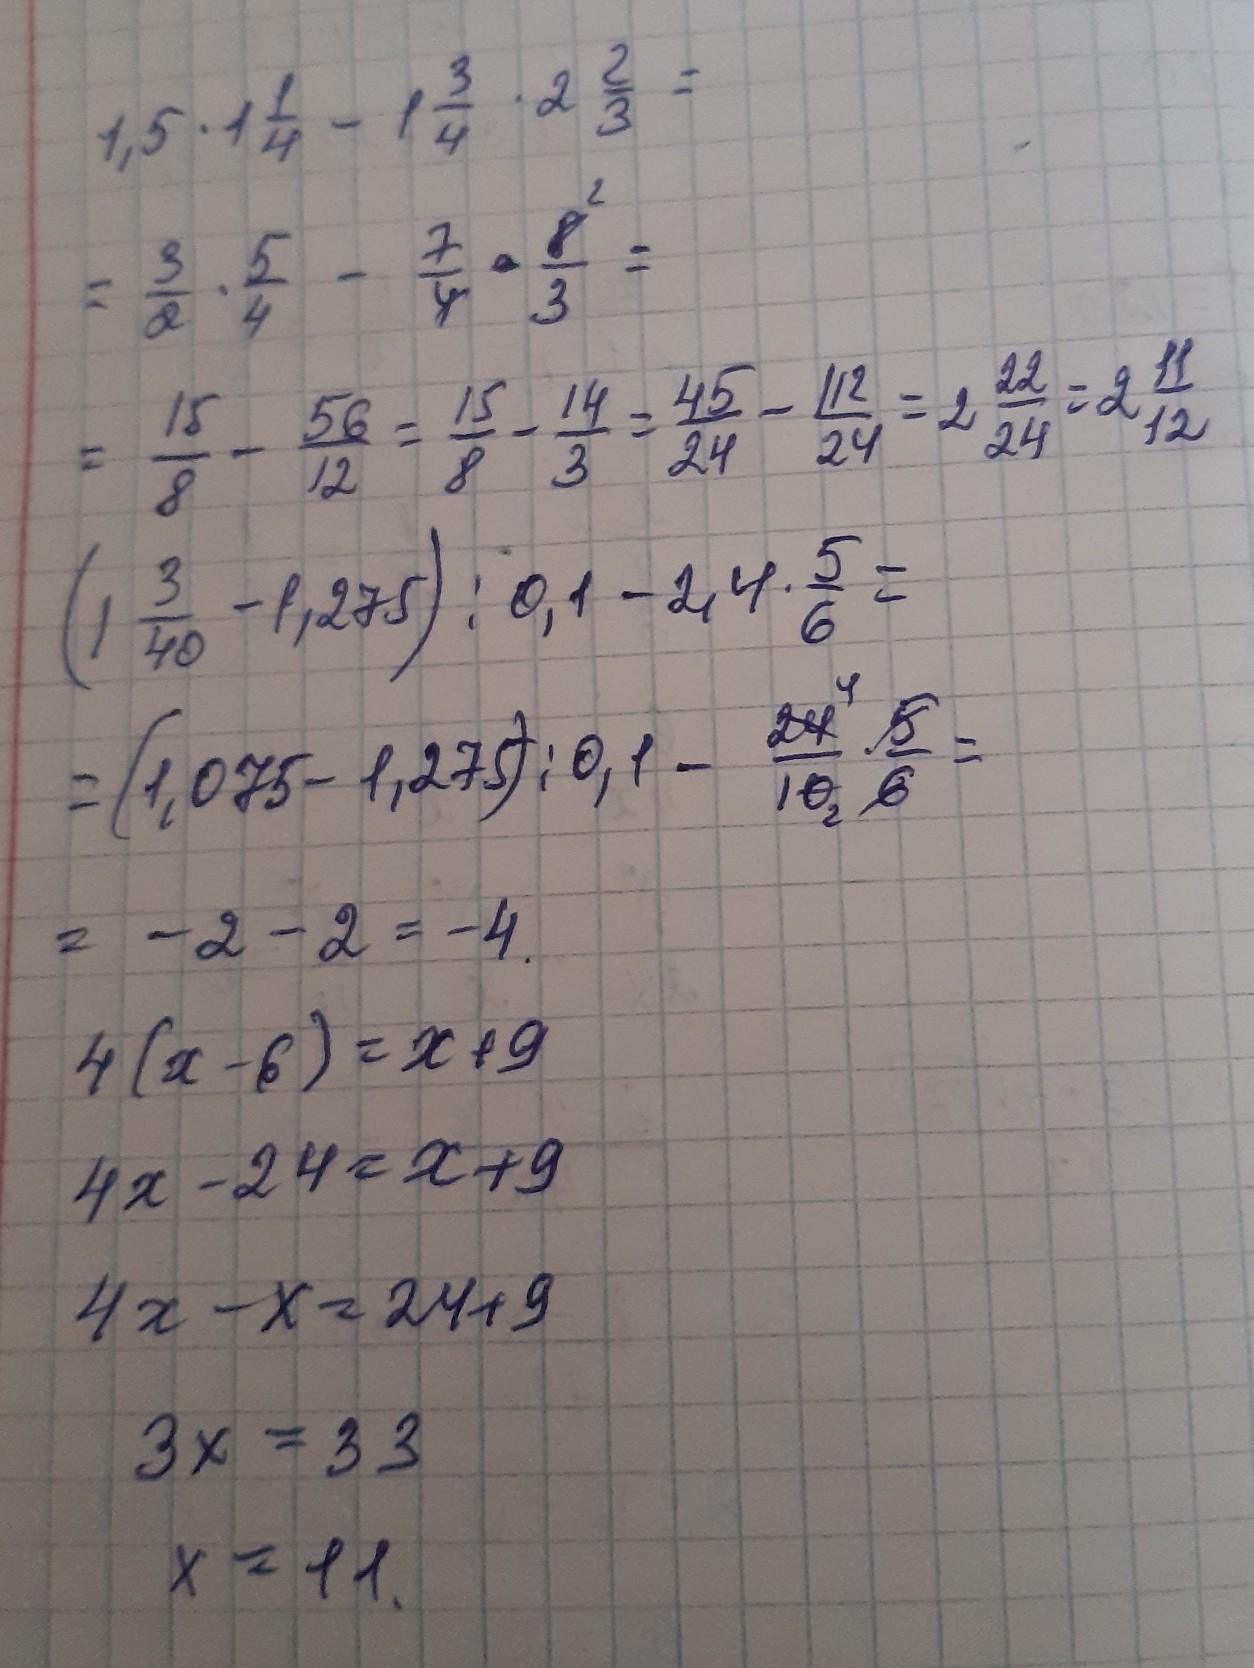 1,5 · 1 1/4 - 1 3/4 · 2 2/3 =
= 3/2 · 5/4 - 7/4 · 8/3 ² =
= 15/8 - 56/12 = 15/8 - 14/3 = 45/24 - 112/24 = 2 22/24 = 2 11/12
(1 3/40 - 1,275) : 0,1 - 2,4 · 5/6 =
= (1,075 - 1,275) : 0,1 - 24 ⁴/10 ₂ · 5/6 =
= -2 - 2 = -4.
4(x - 6) = x + 9
4x - 24 = x + 9
4x - x = 24 + 9
3x = 33
x = 11.